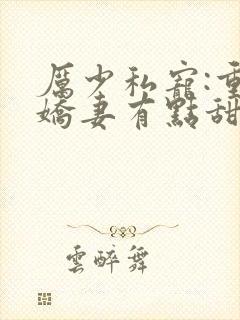 厲少私寵:重
嬌妻有點甜
雲醉舞